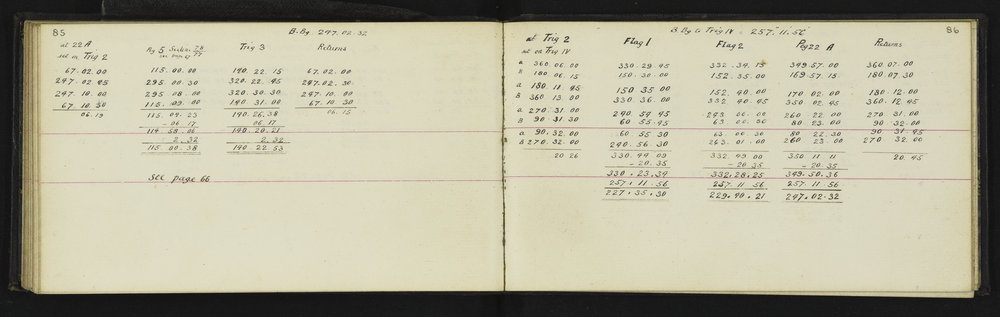 85
B. Bg 247.02.32
at 22 A
set on Trig 2
Peg 5
Trig 3
Returns
67.02.00 115.00.00 140.22.15 67.02.00
247.02.45 295.00.30 320.22.45 247.02.30
247.10.00 295.08.00 320.30.30 247.10.00
67.10.30 115.09.00 140.31.00 67.10.30
06.19 115.04.23 140.26.38 06.15
- 06.17 06.17
114.58.06 140.20.21
2.32 2.32
115.00.38 140 22 53
See page 66
86
B. Bg to Trig IV = 257.11.56
at Trig 2
set on Trig IV
Flag 1
Flag 2
Peg 22 A
Returns
A 360.06.00 330.29.45 332.34.15 349.57.00 360.07.00
B 180 06 15 150.30.00 152.35.00 169.57.15 180.07.30
A 180.11.45 150 35 00 152.40.00 170 02.00 180.12.00
B 360 13 00 330.36.00 332 40 45 350 02.45 360.12.45
A 270.31.00 240 54 45 243 00.00 260 22 00 270 31.00
B 90 31.30 60 55.45 63 00.30 80 23.00 90 32.00
A 90.32.00 60 55 30 63.00 30 80 22.30 90 31.45
B 270 32.00 240.56.30 263.01.00 260 23.00 270 32.00
20 26 330.44 09 332 49 00 350 11 11 20.45
- 20.35 - 20.35 - 20.35
330.23.34 332.28.25 349.50.36
257.11.56 257.11 56 257.11 56
227.35.30 229.40.21 247.02.32